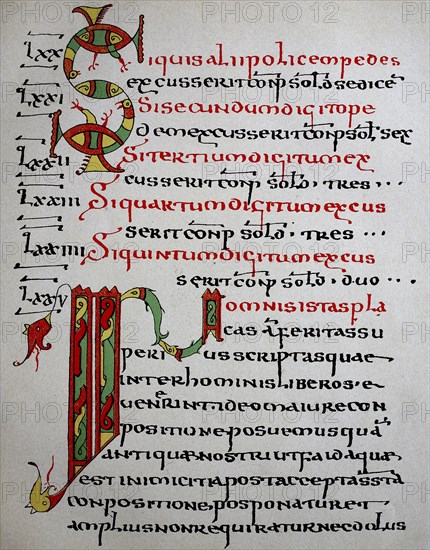 LXX SIquisaliipolicempedes
excusserit conp sold sedice
LXXI Sisecundumdigitope
demexcusserit conp sold sex
LXXII Sitertiumdigitumex
cusserit conp sold · tres · · ·
LXXIII Siquartumdigitumexcus
serit conp sold · tres · · ·
LXXIIII Siquintumdigitumexcus
serit conp sold · duo · · ·
LXXV INomnisistaspla
cas a feritassu
periusscriptasquae
interhominisliberos · e
venerint · ideomaiurecon
positioneposuemusqua
antiquaenostriutfaidaquae
estinimicitiapostacceptassta
conpositionesposponaturet
ampliusnonrequiraturnecdolus